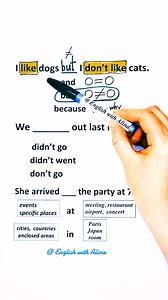 ≠
I like dogs but I don't like cats.
and O=O
but O≠O
because why
English with Alina
We _______ out last
didn't go
didn't went
don't go
She arrived ___ the party at 7
events
specific places
at
meeting, restaurant
airport, concert
cities, countries
enclosed areas
in
Paris
Japan
room
@ English with Alina